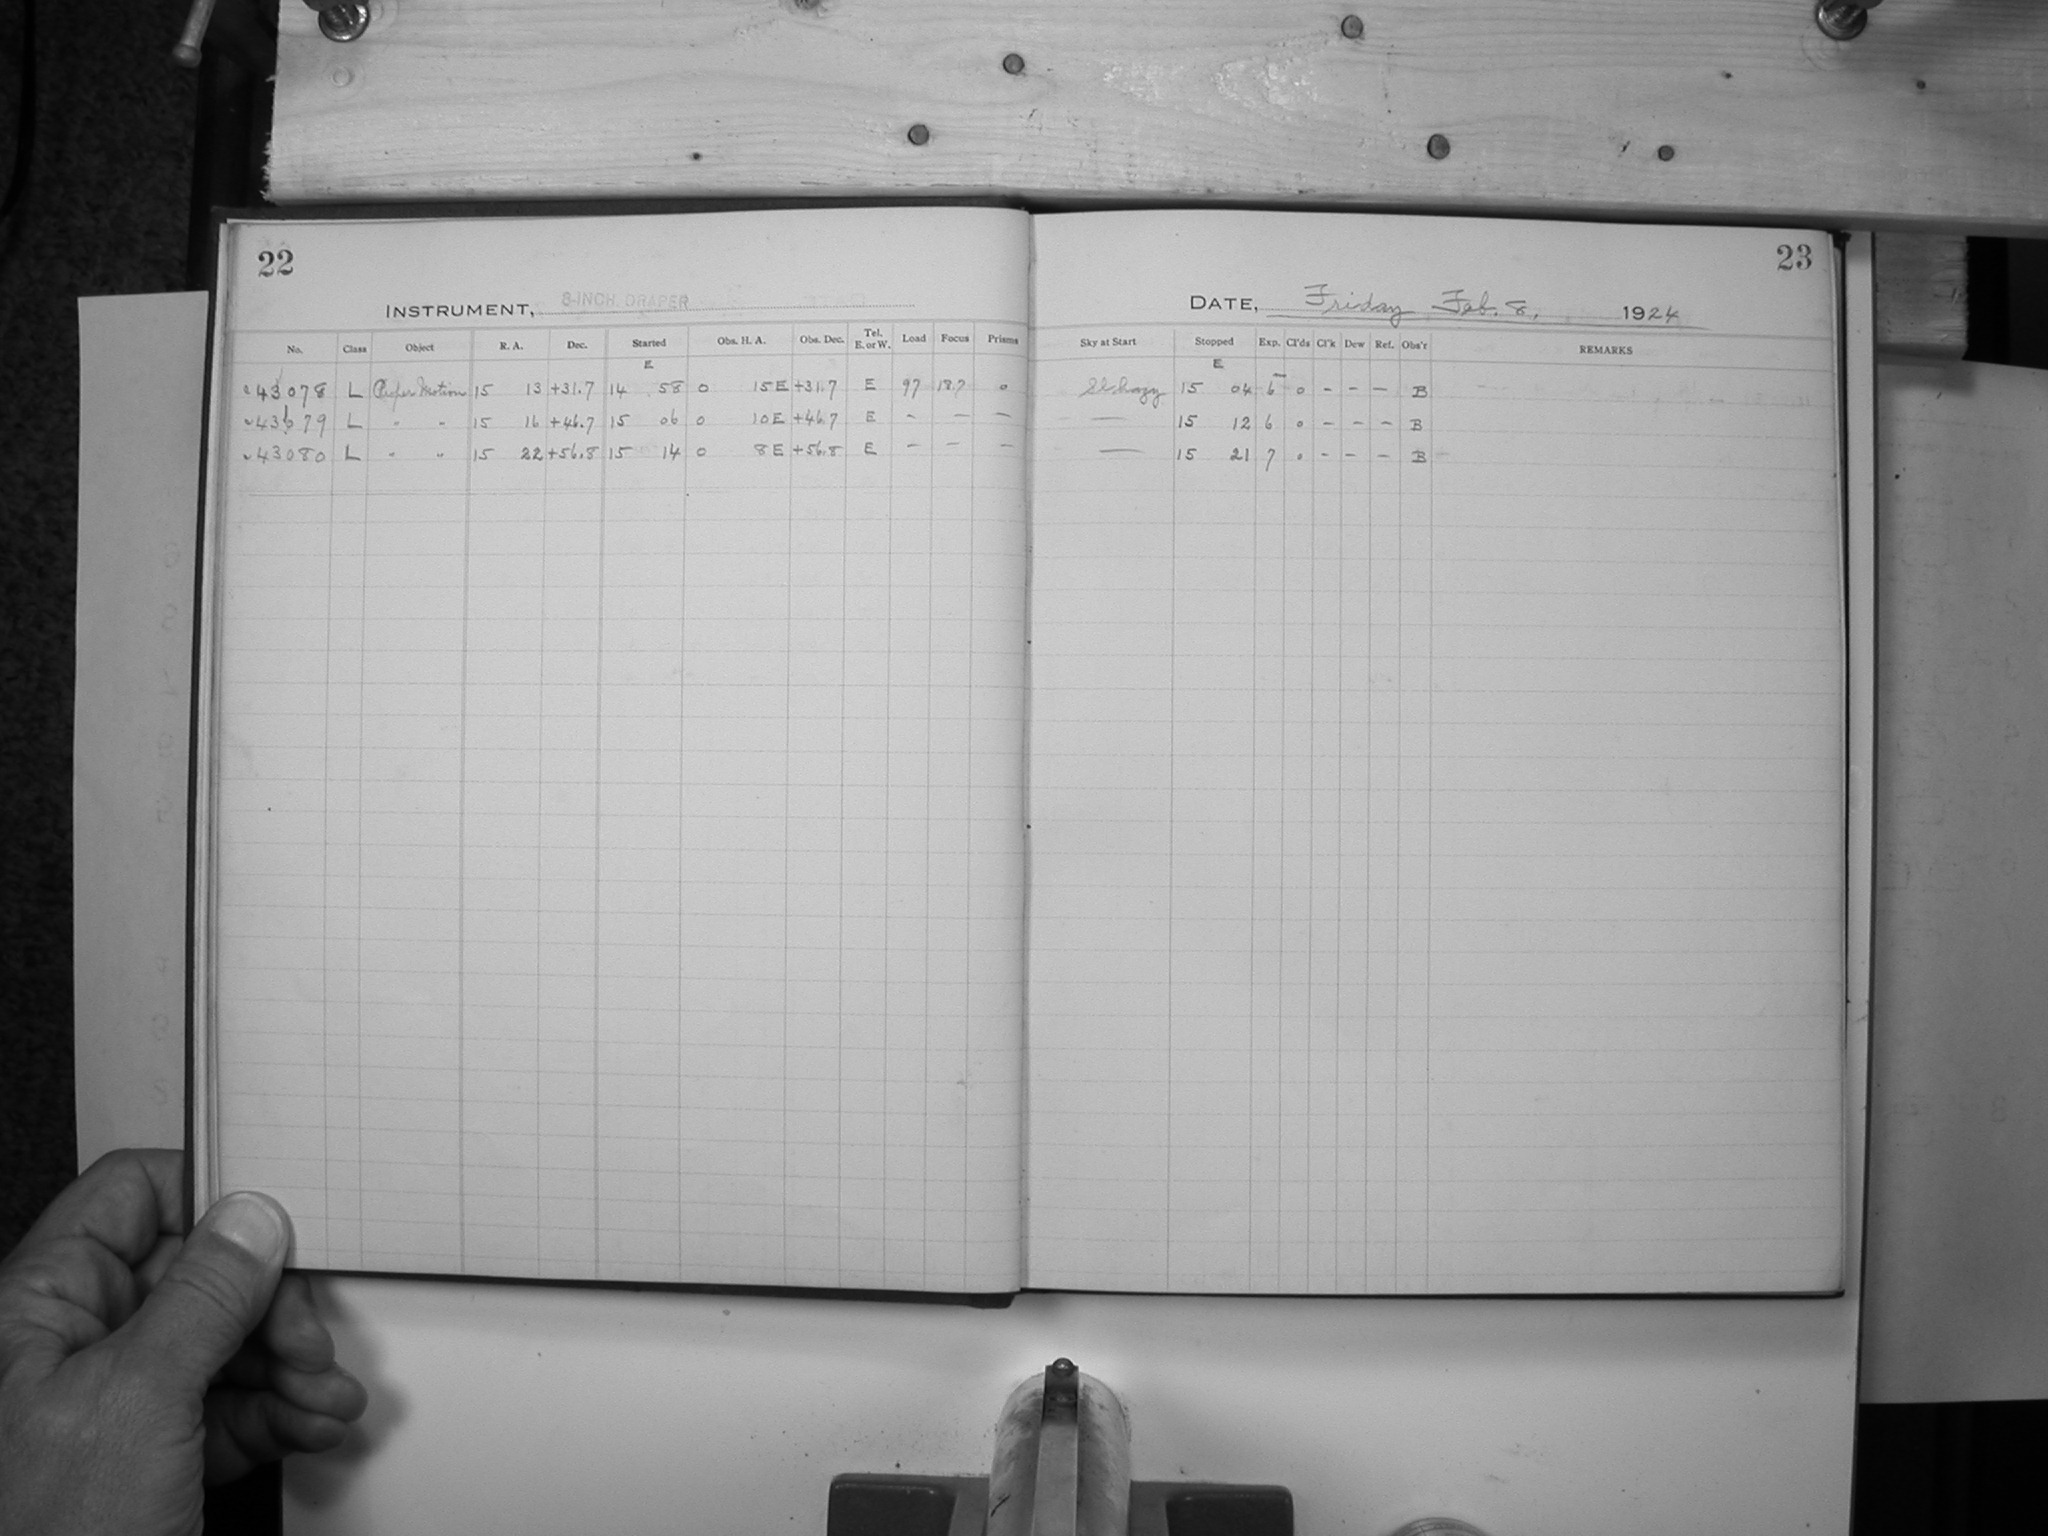 22
23
INSTRUMENT, 8-INCH DRAPER
DATE, Friday Feb. 8, 1924
No. Class Object R. A. Dec. Started Obs. H. A. Obs. Dec. Tel. E. or W. Load Focus Prisms Sky at Start Stopped Exp. Cl'ds Cl'k Dew Ref. Obs'r REMARKS
E E
43078 L Proper Motion 15 13 +31.7 14 58 0 15 E +31.7 E 97 18.7 0 Sl hazy 15 04 6 0 - - - B
43079 L " " 15 16 +46.7 15 06 0 10 E +46.7 E - - - — 15 12 6 0 - - - B
43080 L " " 15 22 +56.8 15 14 0 8 E +56.8 E - - - — 15 21 7 0 - - - B